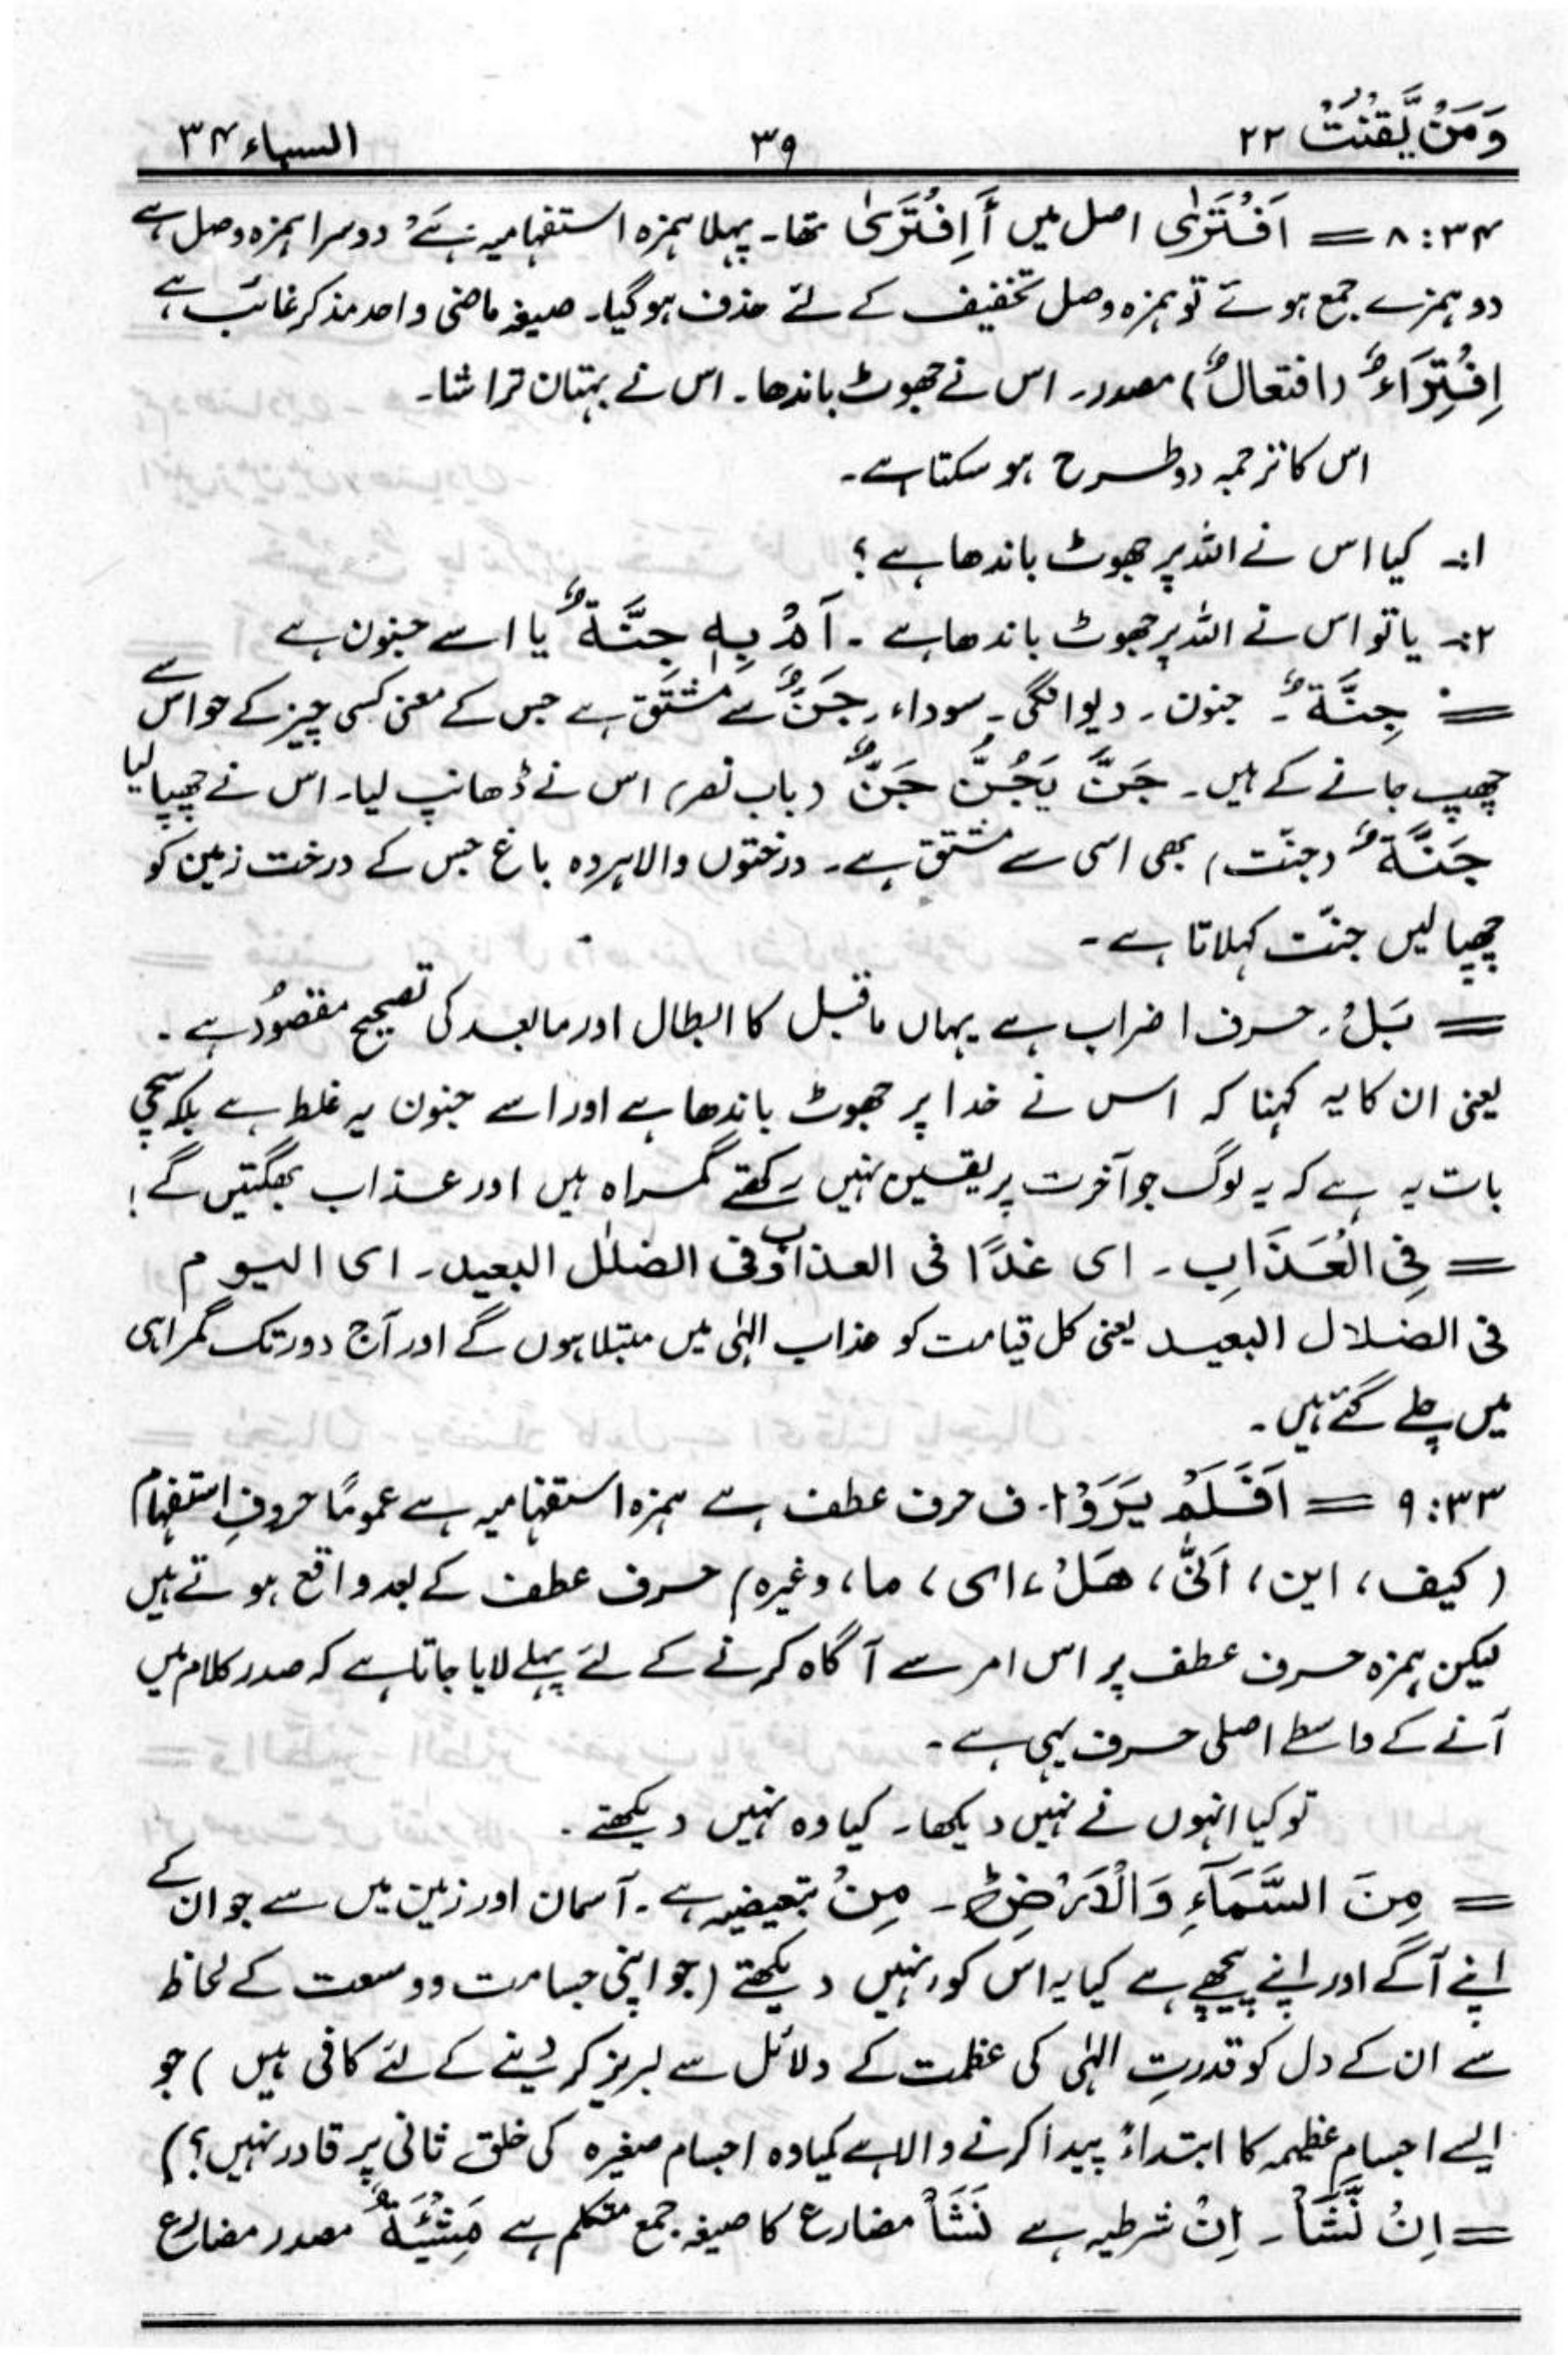 وَمَنْ يَّقْنُتْ ٢٢ ٣٩ السباء ٣٤
٨:٣٤ = اَفْتَرٰى اصل میں أَاِفْتَرٰى تھا۔ پہلا ہمزہ استفہامیہ ہے، دوسرا ہمزہ وصل ہے
دو ہمزے جمع ہوئے تو ہمزہ وصل تخفیف کے لئے حذف ہوگیا۔ صیغہ ماضی واحد مذکر غائب ہے
اِفْتِرَاءٌ (افتعالٌ) مصدر۔ اس نے جھوٹ باندھا۔ اس نے بہتان تراشا۔
اس کا ترجمہ دو طرح ہو سکتا ہے۔
۱:۔ کیا اس نے اللہ پر جھوٹ باندھا ہے؟
۲:۔ یا تو اس نے اللہ پر جھوٹ باندھا ہے۔ اَمْ بِهٖ جِنَّةٌ یا اسے جنون ہے
= جِنَّةٌ۔ جنون۔ دیوانگی۔ سوداء۔ جَنٌّ سے مشتق ہے جس کے معنی کسی چیز کے حواس سے
چھپ جانے کے ہیں۔ جَنَّ يَجُنُّ جَنٌّ (باب نصر) اس نے ڈھانپ لیا۔ اس نے چھپا لیا
جَنَّةٌ (جنّت) بھی اسی سے مشتق ہے۔ درختوں والا ہر وہ باغ جس کے درخت زمین کو
چھپا لیں جنّت کہلاتا ہے۔
= بَلْ۔ حرف اضراب ہے یہاں ماقبل کا ابطال اور مابعد کی تصحیح مقصود ہے۔
یعنی ان کا یہ کہنا کہ اس نے خدا پر جھوٹ باندھا ہے اور اسے جنون یہ غلط ہے بلکہ سچی
بات یہ ہے کہ یہ لوگ جو آخرت پر یقین نہیں رکھتے گمراہ ہیں اور عذاب بھگتیں گے!
= فِى الْعَذَابِ۔ اى غدًا فى العذاب وفى الضلٰل البعيد۔ اى اليوم
فى الضلال البعيد یعنی کل قیامت کو عذاب الٰہی میں مبتلا ہوں گے اور آج دور تک گمراہی
میں چلے گئے ہیں۔
٩:٣٣ = اَفَلَمْ يَرَوْا۔ ف حرف عطف ہے ہمزہ استفہامیہ ہے عموماً حروفِ استفہام
(کیف، این، اَنّٰى، هَلْ، اى، ما، وغیرہ) حرف عطف کے بعد واقع ہوتے ہیں
لیکن ہمزہ حرف عطف پر اس امر سے آگاہ کرنے کے لئے پہلے لایا جاتا ہے کہ صدر کلام میں
آنے کے واسطے اصلی حرف یہی ہے۔
تو کیا انہوں نے نہیں دیکھا۔ کیا وہ نہیں دیکھتے۔
= مِنَ السَّمَآءِ وَالْاَرْضِ ط۔ مِنْ تبعیضیہ ہے۔ آسمان اور زمین میں سے جو ان کے
اپنے آگے اور اپنے پیچھے ہے کیا یہ اس کو نہیں دیکھتے (جو اپنی جسامت و وسعت کے لحاظ
سے ان کے دل کو قدرتِ الٰہی کی عظمت کے دلائل سے لبریز کر دینے کے لئے کافی ہیں) جو
ایسے اجسام عظیمہ کا ابتداءً پیدا کرنے والا ہے کیا وہ اجسام صغیرہ کی خلق ثانی پر قادر نہیں؟)
= اِنْ نَّشَاْ۔ اِنْ شرطیہ ہے نَشَاْ مضارع کا صیغہ جمع متکلم ہے مَشِيْئَةٌ مصدر مضارع